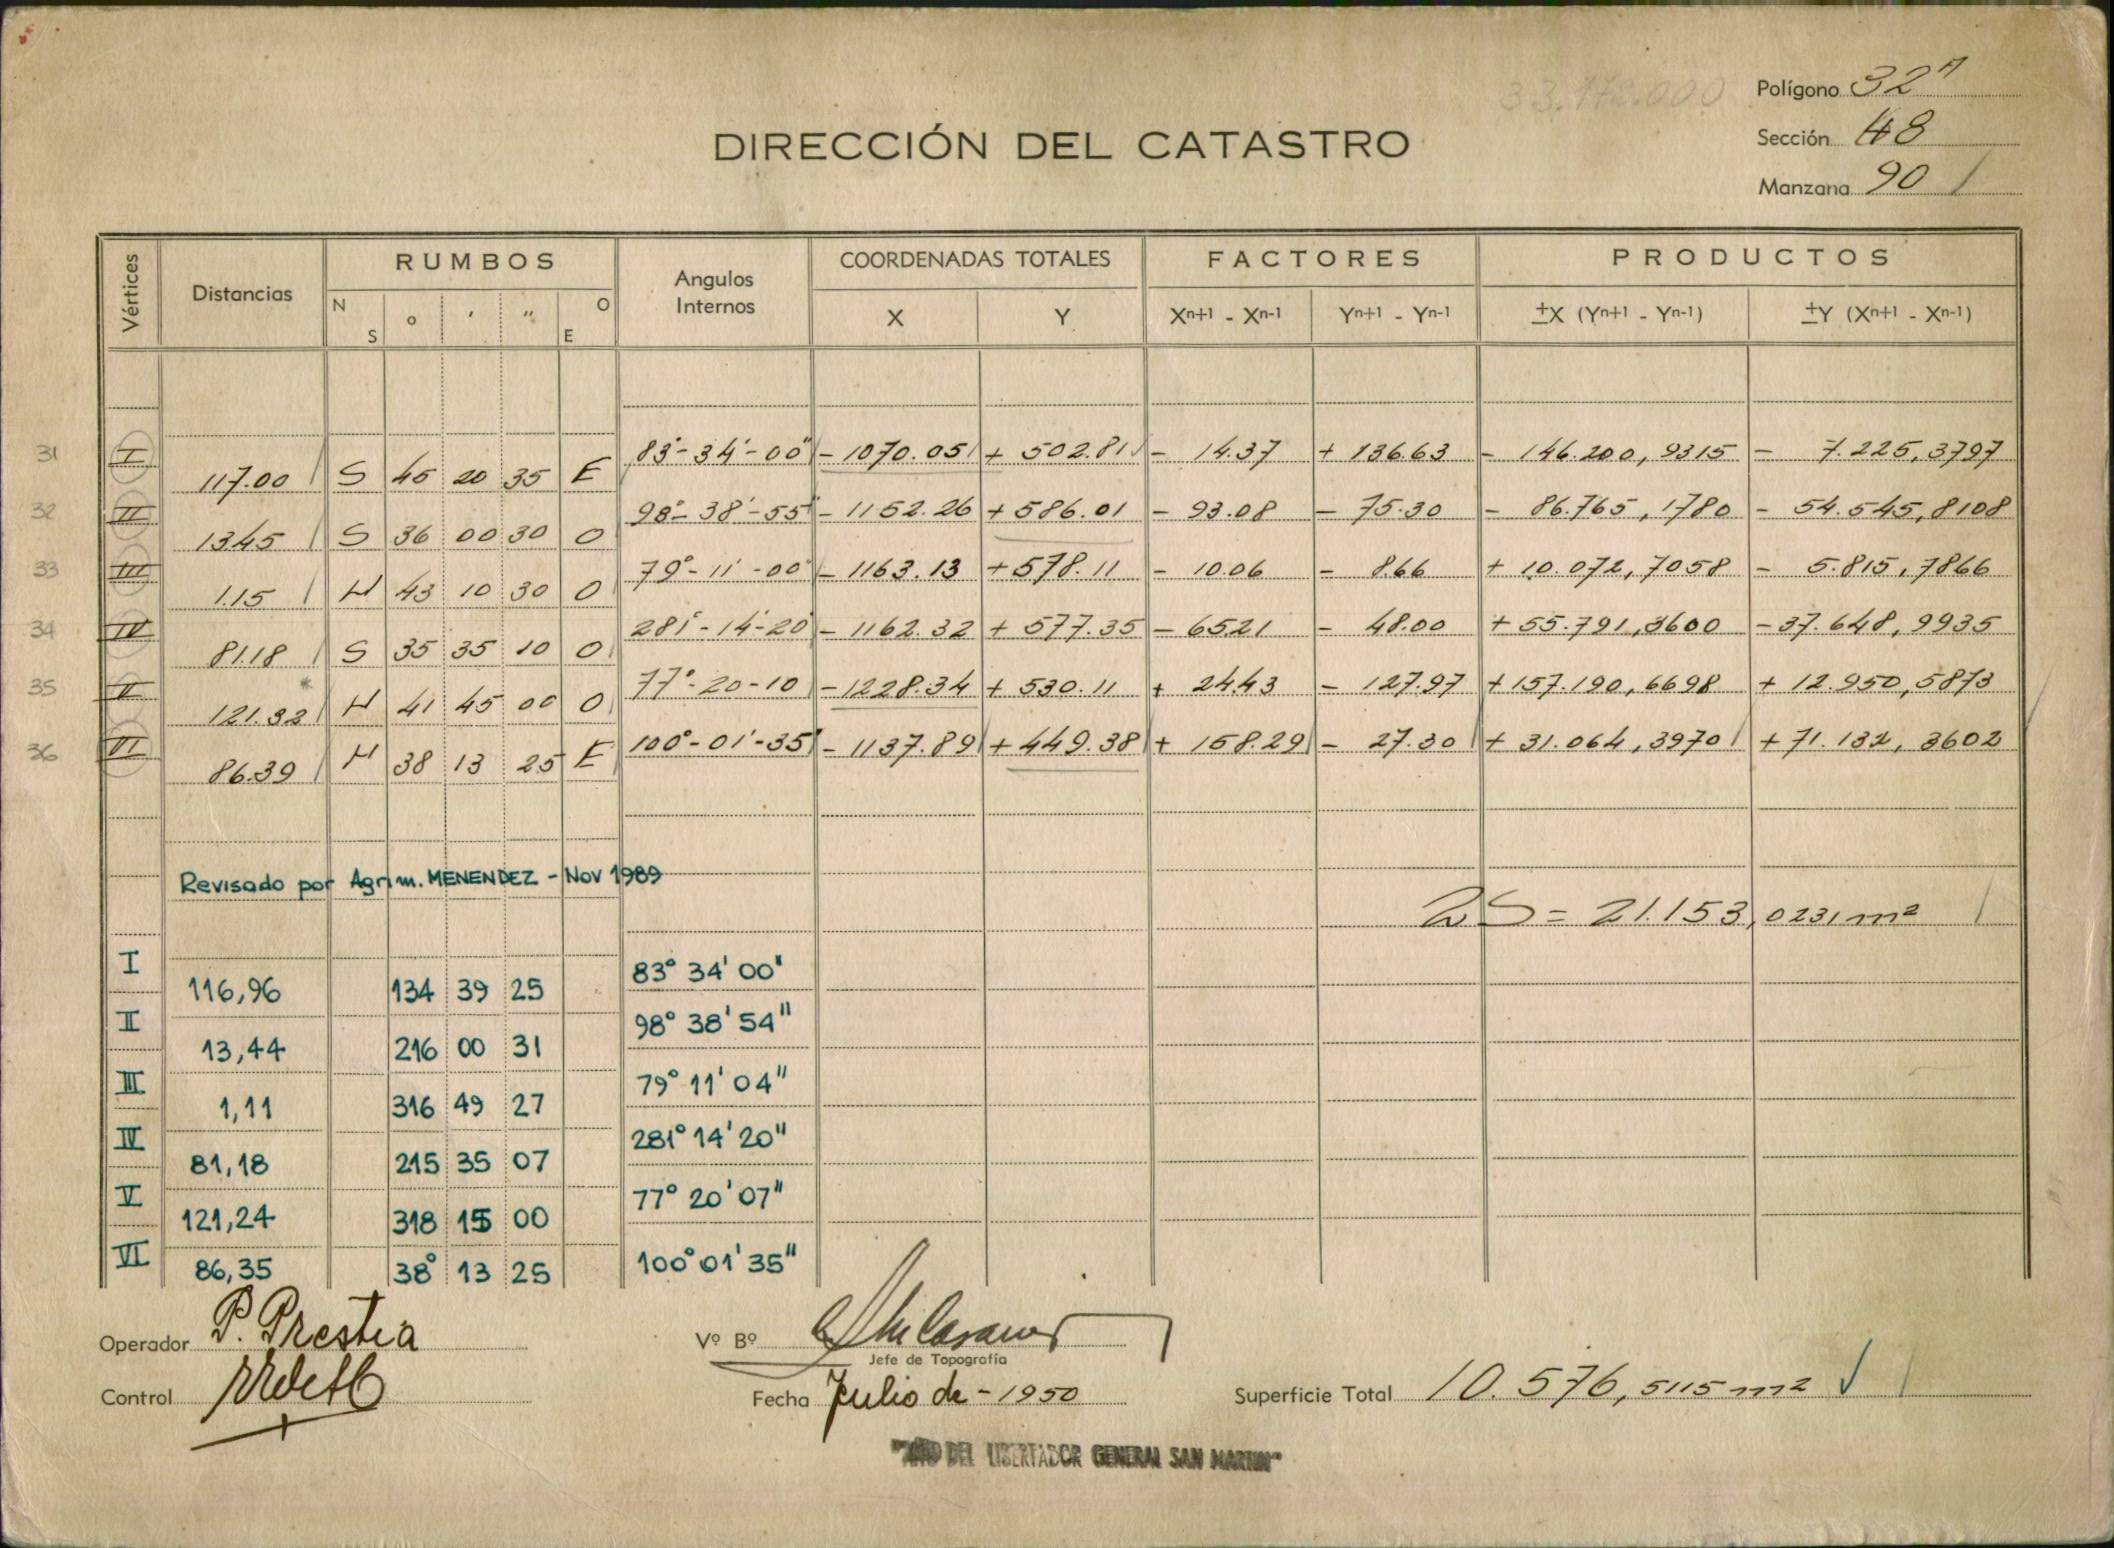 33.172.000
Polígono 32A
Sección 48
Manzana 90
DIRECCIÓN DEL CATASTRO
Vértices Distancias RUMBOS Angulos Internos COORDENADAS TOTALES FACTORES PRODUCTOS
N S ° ' " O E X Y Xn+1 - Xn-1 Yn+1 - Yn-1 ±X (Yn+1 - Yn-1) ±Y (Xn+1 - Xn-1)
31 I 83°-34'-00" - 1070.05 + 502.81 - 14.37 + 136.63 - 146.200,9315 - 7.225,3797
117.00 S 45 20 35 E
32 II 98°-38'-55" - 1152.26 + 586.01 - 93.08 - 75.30 - 86.765,1780 - 54.545,8108
13.45 S 36 00 30 O
33 III 79°-11'-00" - 1163.13 + 578.11 - 10.06 - 8.66 + 10.072,7058 - 5.815,7866
1.15 N 43 10 30 O
34 IV 281°-14'-20" - 1162.32 + 577.35 - 65.21 - 48.00 + 55.791,3600 - 37.648,9935
81.18 S 35 35 10 O
35 V 77°-20-10 - 1228.34 + 530.11 + 24.43 - 127.97 + 157.190,6698 + 12.950,5873
121.32 N 41 45 00 O
36 VI 100°-01'-35" - 1137.89 + 449.38 + 158.29 - 27.30 + 31.064,3970 + 71.132,3602
86.39 N 38 13 25 E
Revisado por Agrim. MENENDEZ - Nov 1989
2S = 21.153,0231 m²
I 83° 34' 00"
116,96 134 39 25
II 98° 38' 54"
13,44 216 00 31
III 79° 11' 04"
1,11 316 49 27
IV 281° 14' 20"
81,18 215 35 07
V 77° 20' 07"
121,24 318 15 00
VI 100° 01' 35"
86,35 38° 13 25
Operador P. Prestia
Vº Bº
Jefe de Topografía
Control
Fecha Julio de - 1950
Superficie Total 10.576,5115 m2
"AÑO DEL LIBERTADOR GENERAL SAN MARTIN"